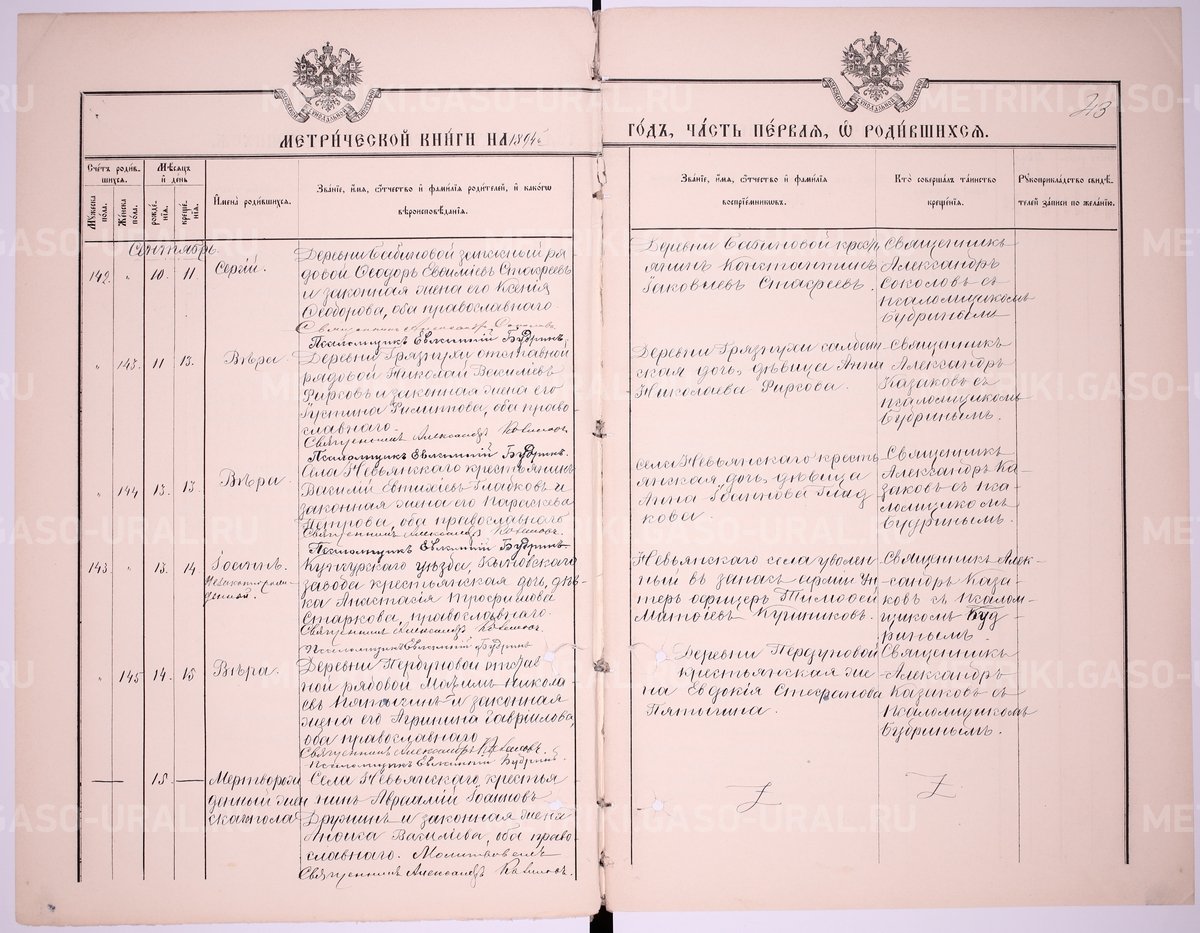 МЕТРИ́ЧЕСКОЙ КНИ́ГИ НА 1894й
ГО́ДЪ, ЧА́СТЬ ПЕ́РВАЯ, Ѡ҆ РОДИ́ВШИХСЯ.
213
Сче́тъ роди́в-
шихся.
Мѣ́сяцъ
и҆ день
Му́жеска по́ла.
Же́нска по́ла.
рожде́-
нїя.
креще́-
нїя.
И҆мена̀ роди́вшихся.
Зва́нїе, и҆́мя, ѻ҆́тчество и҆ фами́лїя роди́телей, и҆ како́гѡ
вѣроисповѣ́данїя.
Зва́нїе, и҆́мя, ѻ҆́тчество и҆ фами́лїя
воспрїе́мниковъ.
Кто̀ соверша́лъ та́инство
креще́нїя.
Рукоприкла́дство свидѣ́-
телей за́писи по жела́нїю.
Сентябрь.
142. " 10. 11 Сергій.
Деревни
довой Ѳеодоръ Евѳиміевъ
и законная жена его Ксенія
Ѳеодорова, оба православнаго.
Священникъ Александръ Соколовъ
Псаломщикъ Евѳимій Будринъ.
Деревни крестьянинъ Константинъ
Іаковлевъ
Священникъ
Александръ
Соколовъ съ
псаломщикомъ
Будринымъ
" 143. 11 13. Вѣра.
Деревни Грязнухи отставной
рядовой Николай Васильевъ
и законная жена его
Іустина Филиппова, оба право-
славнаго.
Священникъ Александръ Казаковъ.
Псаломщикъ Евѳимій Будринъ.
Деревни Грязнухи солдат-
ская дочь, дѣвица Анна
Николаева
Священникъ
Александръ
Казаковъ съ
псаломщикомъ
Будринымъ.
" 144 13. 13. Вѣра.
Села Невьянскаго крестьянинъ
Василій Евтихіевъ Гладковъ и
законная жена его Параскева
Петрова, оба православнаго
Священникъ Александръ Казаковъ.
Псаломщикъ Евѳимій Будринъ
Села Невьянскаго кресть-
янская дочь, дѣвица
Анна Іоаннова Глад-
кова.
Священникъ
Александръ Ка-
заковъ съ пса-
ломщикомъ
Будринымъ.
143. " 13. 14 Іоаннъ.
Незаконнорож-
денный.
Кунгурскаго уѣзда, Кыновскаго
завода крестьянская дочь, дѣв-
ка Анастасія Трофимова
Старкова, православнаго.
Священникъ Александръ Казаковъ.
Псаломщикъ Евѳимій Будринъ
Невьянскаго села уволен-
ный въ запасъ арміи Ун-
теръ офицеръ Тимоѳей
Матѳіевъ
Священникъ Алек-
сандръ Каза-
ковъ съ псалом-
щикомъ Буд-
ринымъ.
" 145 14. 15 Вѣра.
Деревни отстав-
ной рядовой Максимъ Никола-
евъ Пятыгинъ и законная
жена его Агрипина Гавриилова,
оба православнаго
Священникъ Александръ Казаковъ.
Псаломщикъ Евѳимій Будринъ.
Деревни
крестьянская же-
на Евдокія Стефанова
Пятыгина.
Священникъ
Александръ
Казаковъ съ
псаломщикомъ
Будринымъ.
— 15. — Мертворож-
денный жен-
скаго пола
Села Невьянскаго, крестья-
нинъ Авраамій Іоанновъ
и законная жена
Васильева, оба право-
славнаго.
Священникъ Александръ Казаковъ.
METRIKI.GASO-URAL.RU